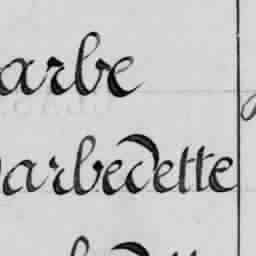 arbe
arbedette